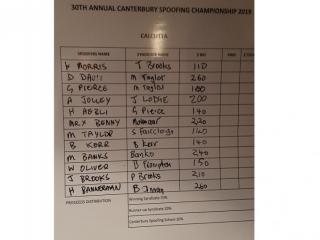 30TH ANNUAL CANTERBURY SPOOFING CHAMPIONSHIP 2019
CALCUTTA
SPOOFERS NAME SYNDICATE NAME $ BID PAID
MORRIS J Brooks 110
D DAVI M Taylor 260
G PIERCE M Taylor 180
A JOLLEY J Lobie 200
H AEBLI G Pierce 140
MRX BENNY 220
M TAYLOR S Fairclough 140
B KERR B Kerr 140
M BANKS Banko 240
W OLIVER B 150
J BROOKS P Brooks 210
H BANNERMAN B Innan 260
PROCEEDS DISTRIBUTION Winning Syndicate 70%
Runner-up Syndicate 20%
Canterbury Spoofing School 10%